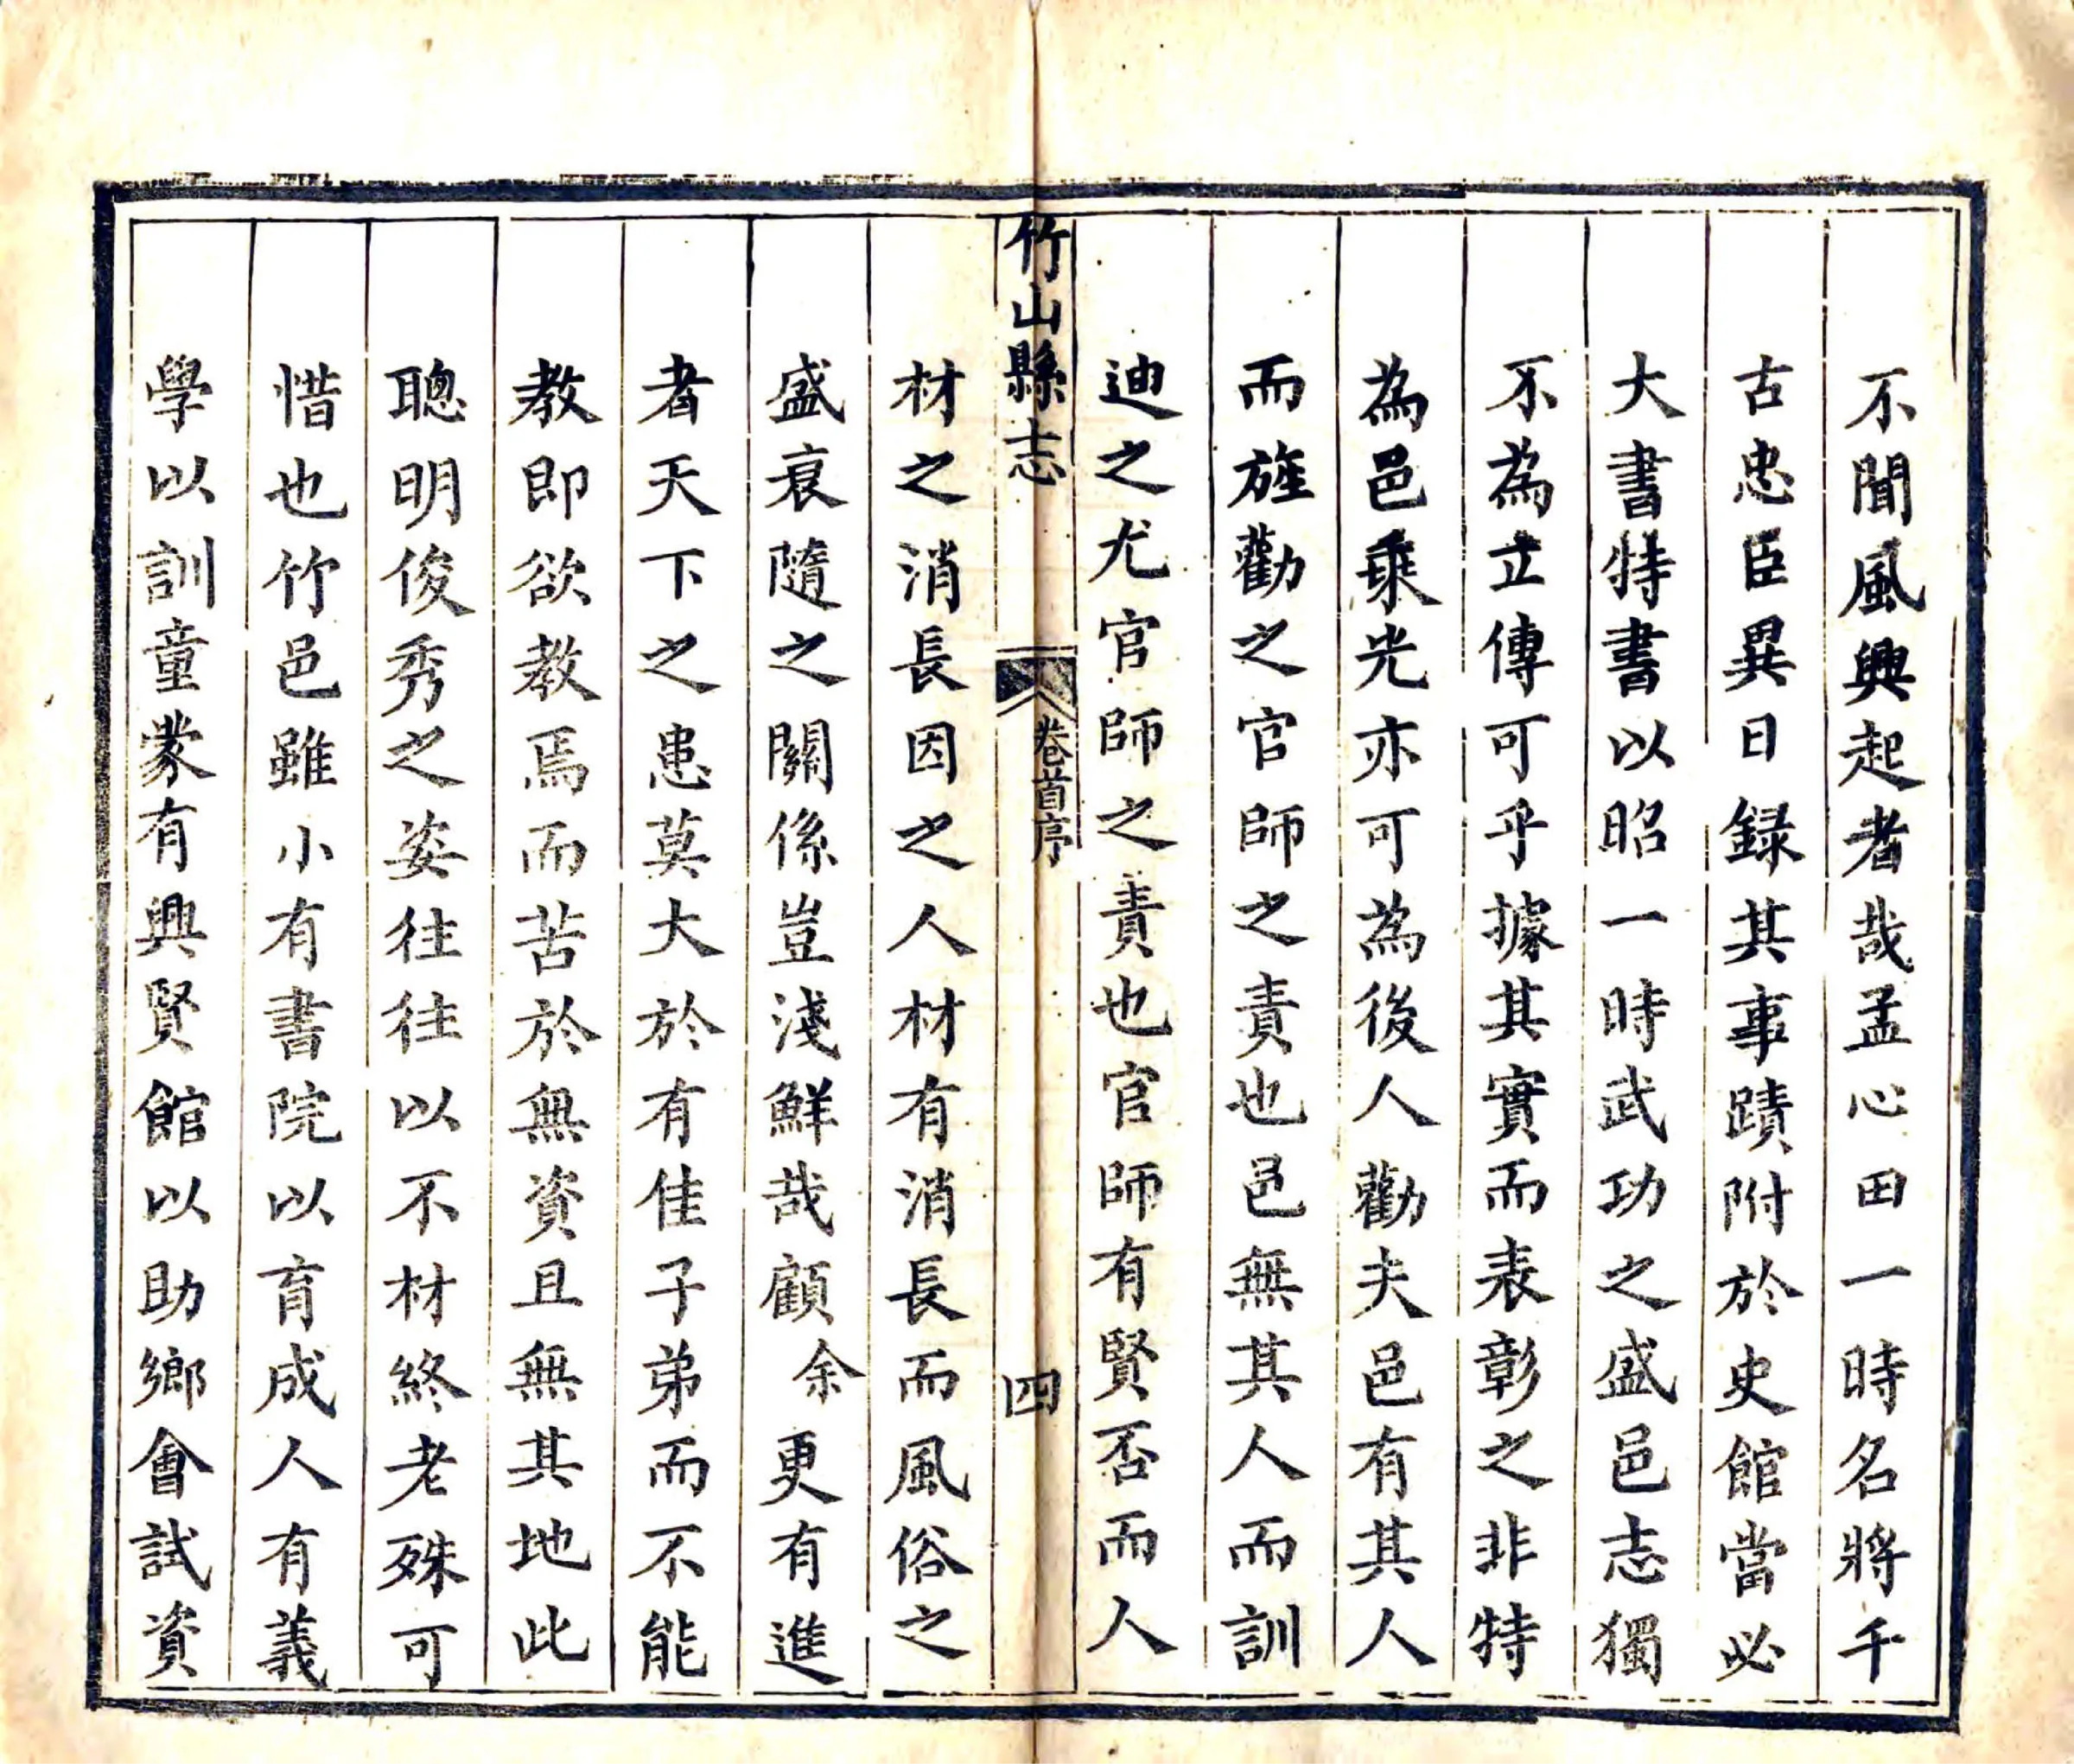 不聞風興起者哉孟心田一時名將千
古忠臣異日録其事蹟附於史館當必
大書特書以昭一時武功之盛邑志獨
不為立傳可乎據其實而表彰之非特
為邑乘光亦可為後人勸夫邑有其人
而旌勸之官師之責也邑無其人而訓
迪之尤官師之責也官師有賢否而人
竹山縣志
卷首序
四
材之消長因之人材有消長而風俗之
盛衰隨之關係豈淺鮮哉顧余更有進
者天下之患莫大於有佳子弟而不能
教即欲教焉而苦於無資且無其地此
聰明俊秀之姿往往以不材終老殊可
惜也竹邑雖小有書院以育成人有義
學以訓童蒙有興賢館以助鄉會試資